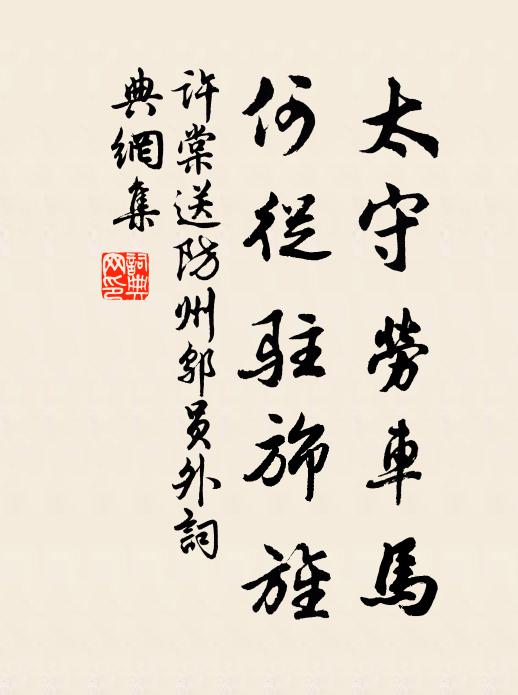 太守勞車馬
何從駐旆旌
許棠送防州鄔员外詞
典網集
詞典网印